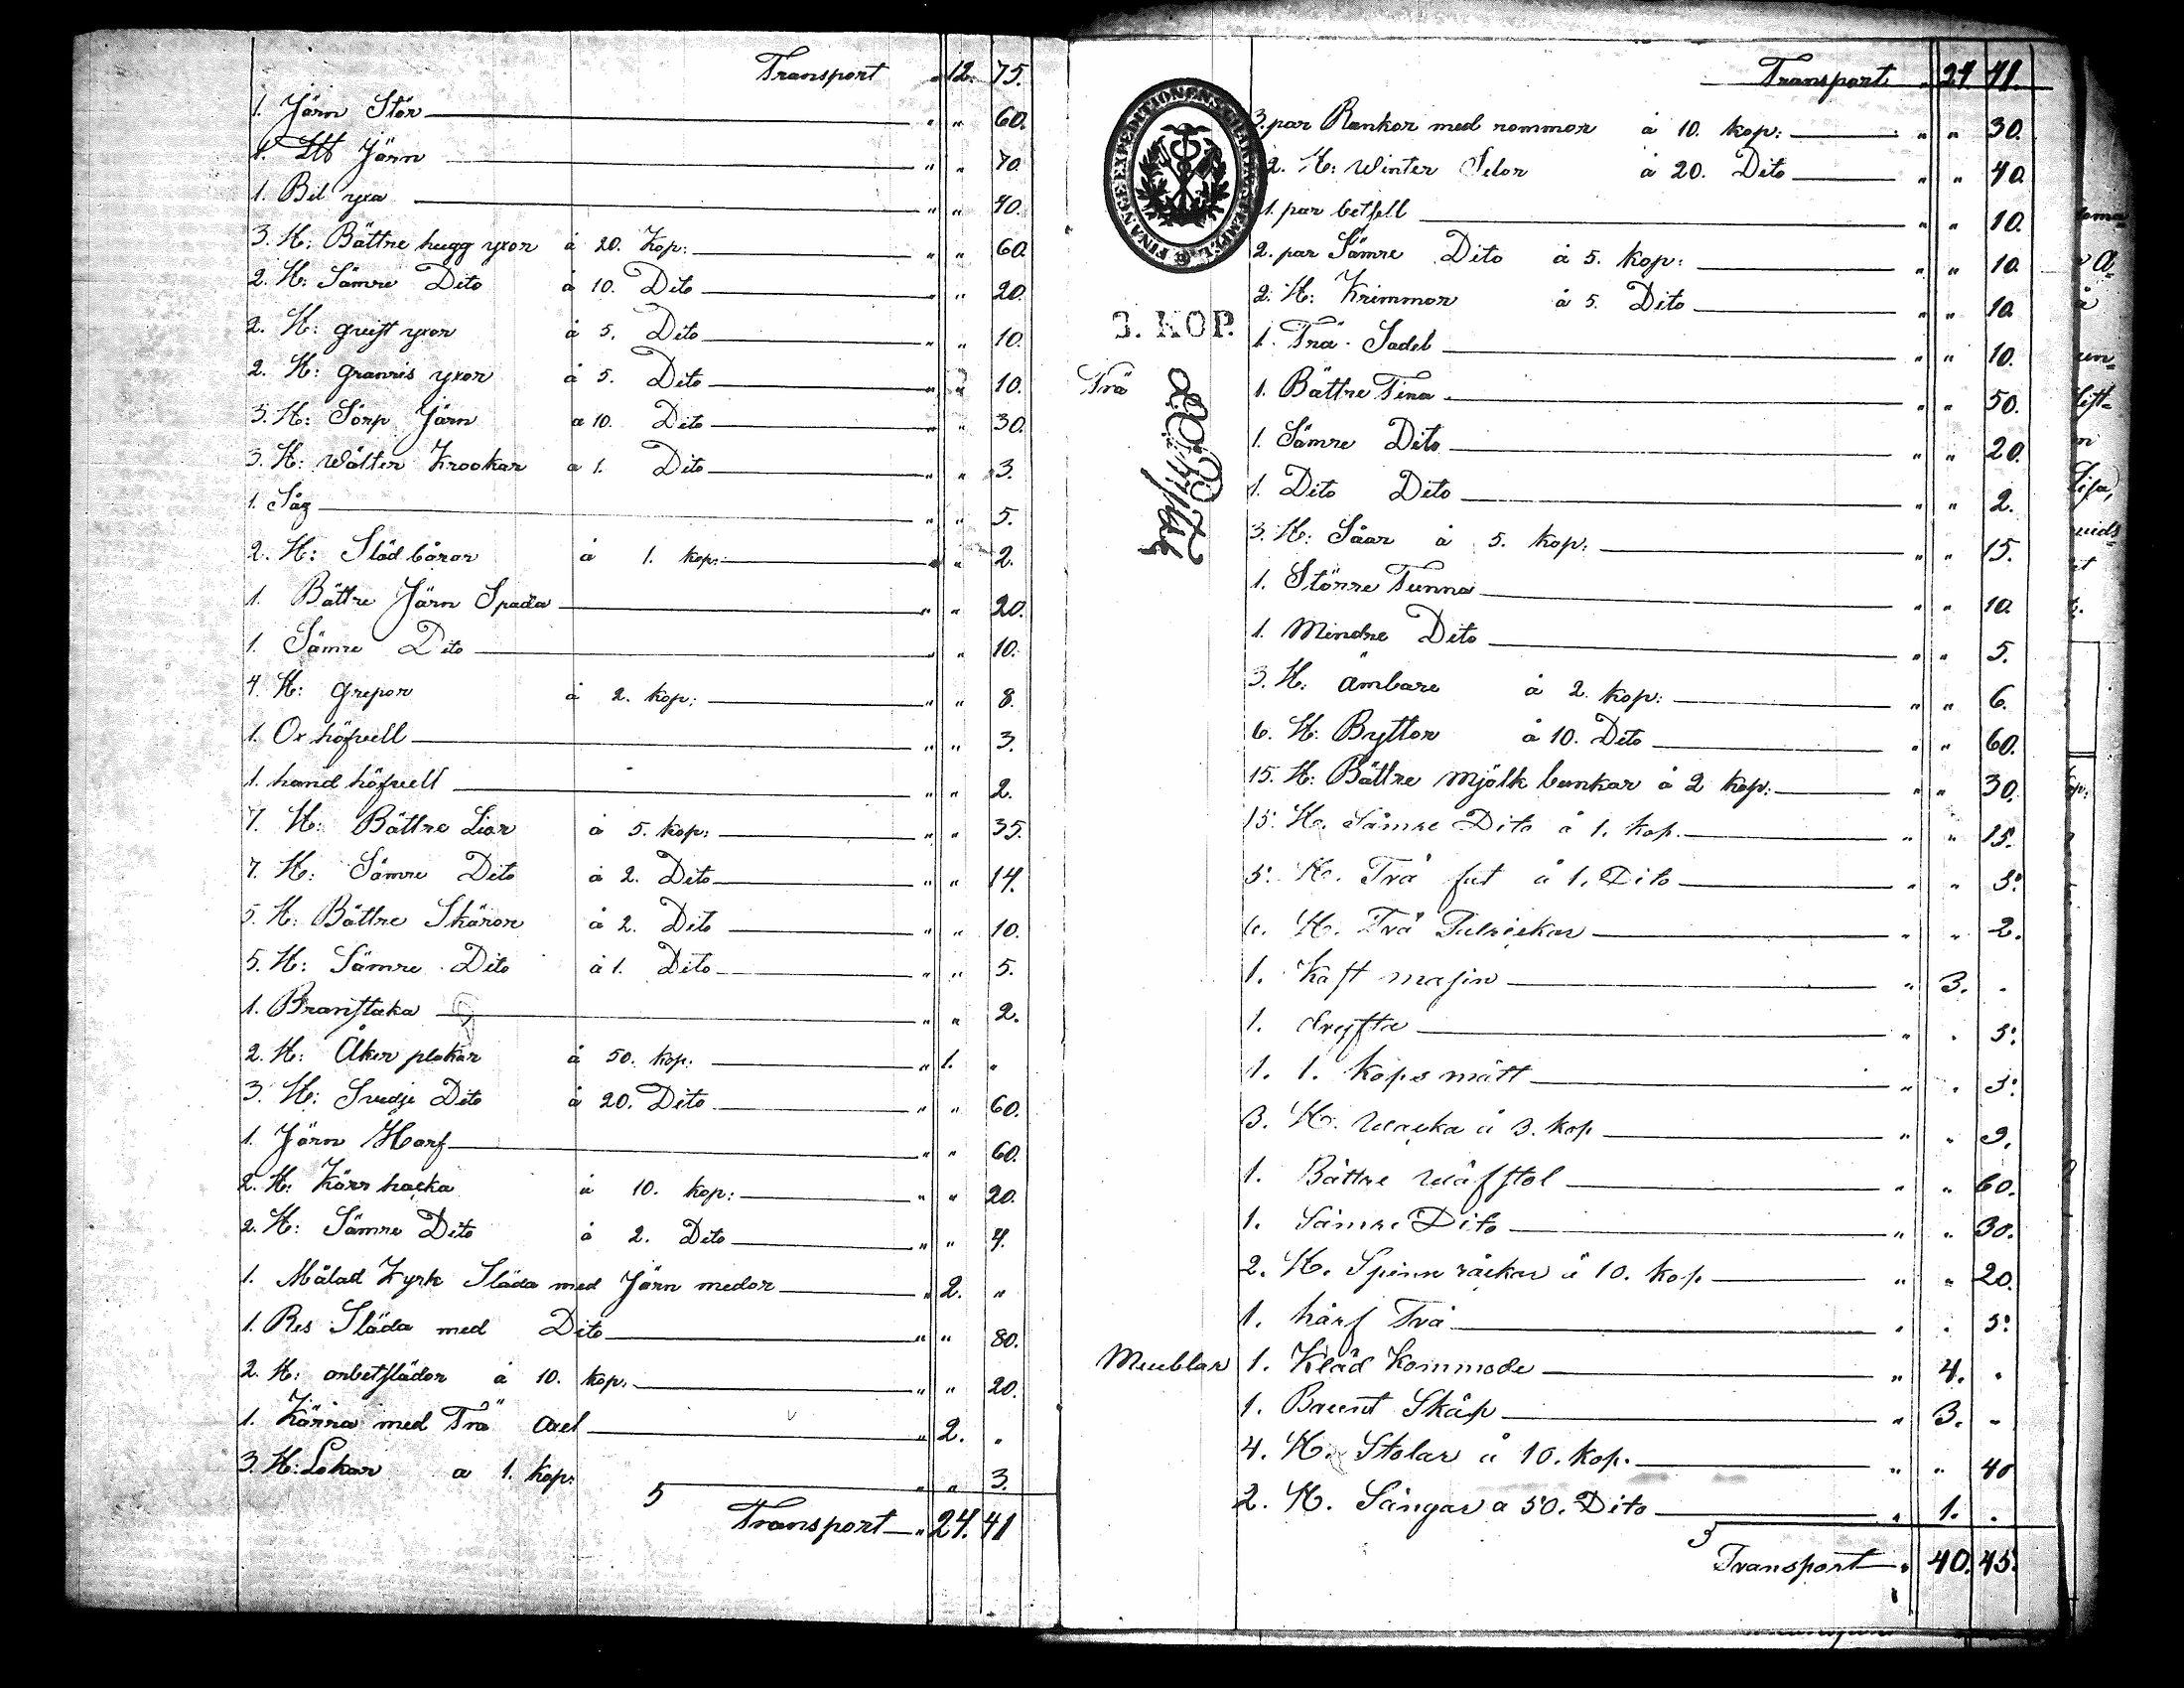 Transport " 12. 75.
1. Järn Stör " " 60.
1. Dtt Järn " " 70.
1. Bil yxa " " 40.
3. St: Bättre hugg yxor à 20. Kop: " " 60.
2. St: Sämre Dito à 10. Dito " " 20.
2. St: qvist yxor à 5. Dito " " 10.
2. St: granris yxor à 5. Dito " " 10.
3. St: Sörp Järn a 10. Dito " " 30.
3. St: wälter Krookar a 1. Dito " " 3.
1. Såg " " 5.
2. St: Släd båror à 1. kop: " " 2.
1. Bättre Järn Spada " " 20.
1. Sämre Dito " " 10.
4. St: grepor à 2. kop: " " 8.
1. Ox höfvell " " 3.
1. hand höfvell " " 2.
7. St: Bättre Liar à 5. kop: " " 35.
7. St: Sämre Dito à 2. Dito " " 14.
5. St: Bättre Skäror à 2. Dito " " 10.
5. St: Sämre Dito à 1. Dito " " 5.
1. Branstaka " " 2.
2. St: Åker plokar à 50. kop: " 1. "
3. St: Svedje Dito à 20. Dito " " 60.
1. Järn Harf " " 60.
2. St: Kärr hacka à 10. kop: " " 20.
2. St: Sämre Dito à 2. Dito " " 4.
1. Målad Kyrk Släda med Järn medor " 2. "
1. Res Släda med Dito " " 80.
2. St: arbetslädor à 10. kop. " " 20.
1. Kärra med Trä axel " 2. "
3. St: Lokar a 1. kop: " " 3.
5
Transport " 24. 41
Transport " 24. 41.
FINANCE EXPEDITIONENS CHARTÆ STEMPEL
3. KOP.
3. par Rankor med rommor à 10. kop: " " 30.
2. St: Winter Selor à 20. Dito " " 40.
1. par betsell " " 10.
2. par Sämre Dito à 5. kop: " " 10.
2. St: Krimmor à 5. Dito " " 10.
1. Trä Sadel " " 10.
Trä 1. Bättre Tina " " 50.
1. Sämre Dito " " 20.
1. Dito Dito " " 2.
3. St: Såar à 5. kop: " " 15.
1. Större Tunna " " 10.
1. Mindre Dito " " 5.
3. St: Ämbare à 2. kop: " " 6.
6. St: Byttor à 10. Dito " " 60.
15. St: Bättre mjölk bunkar à 2 kop: " " 30.
15. St. Sämre Dito à 1. kop. " " 15.
5. St. Trä fat à 1. Dito " " 5.
6. St. Trä " " 2.
1. Kast masin " 3. "
1. dryfta " " 5.
1. 1. Kops mått " " 5.
3. St. Wacka à 3. kop " " 9.
1. Bättre Wäfstol " " 60.
1. Sämre Dito " " 30.
2. St. Spinn råckar à 10. kop " " 20.
1. härf Trä " " 5.
Meublar 1. Kläd Kommode " 4. "
1. Brunt Skåp " 3. "
4. St. Stolar à 10. kop. " " 40
2. St. Sängar a 50. Dito " 1. "
5
Transport " 40. 45.